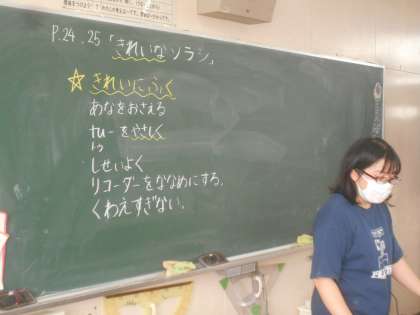 P.24.25「きれいなソラシ」
☆きれいにふく
あなをおさえる
tuーをやさしく
しせいよく
リコーダーをななめにする。
くわえすぎない。